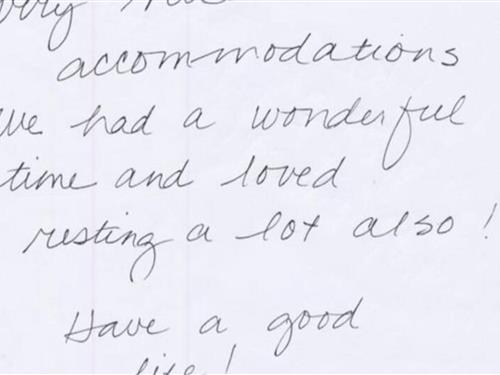 accommodations
We had a wonderful
time and loved
resting a lot also!
Have a good
life!